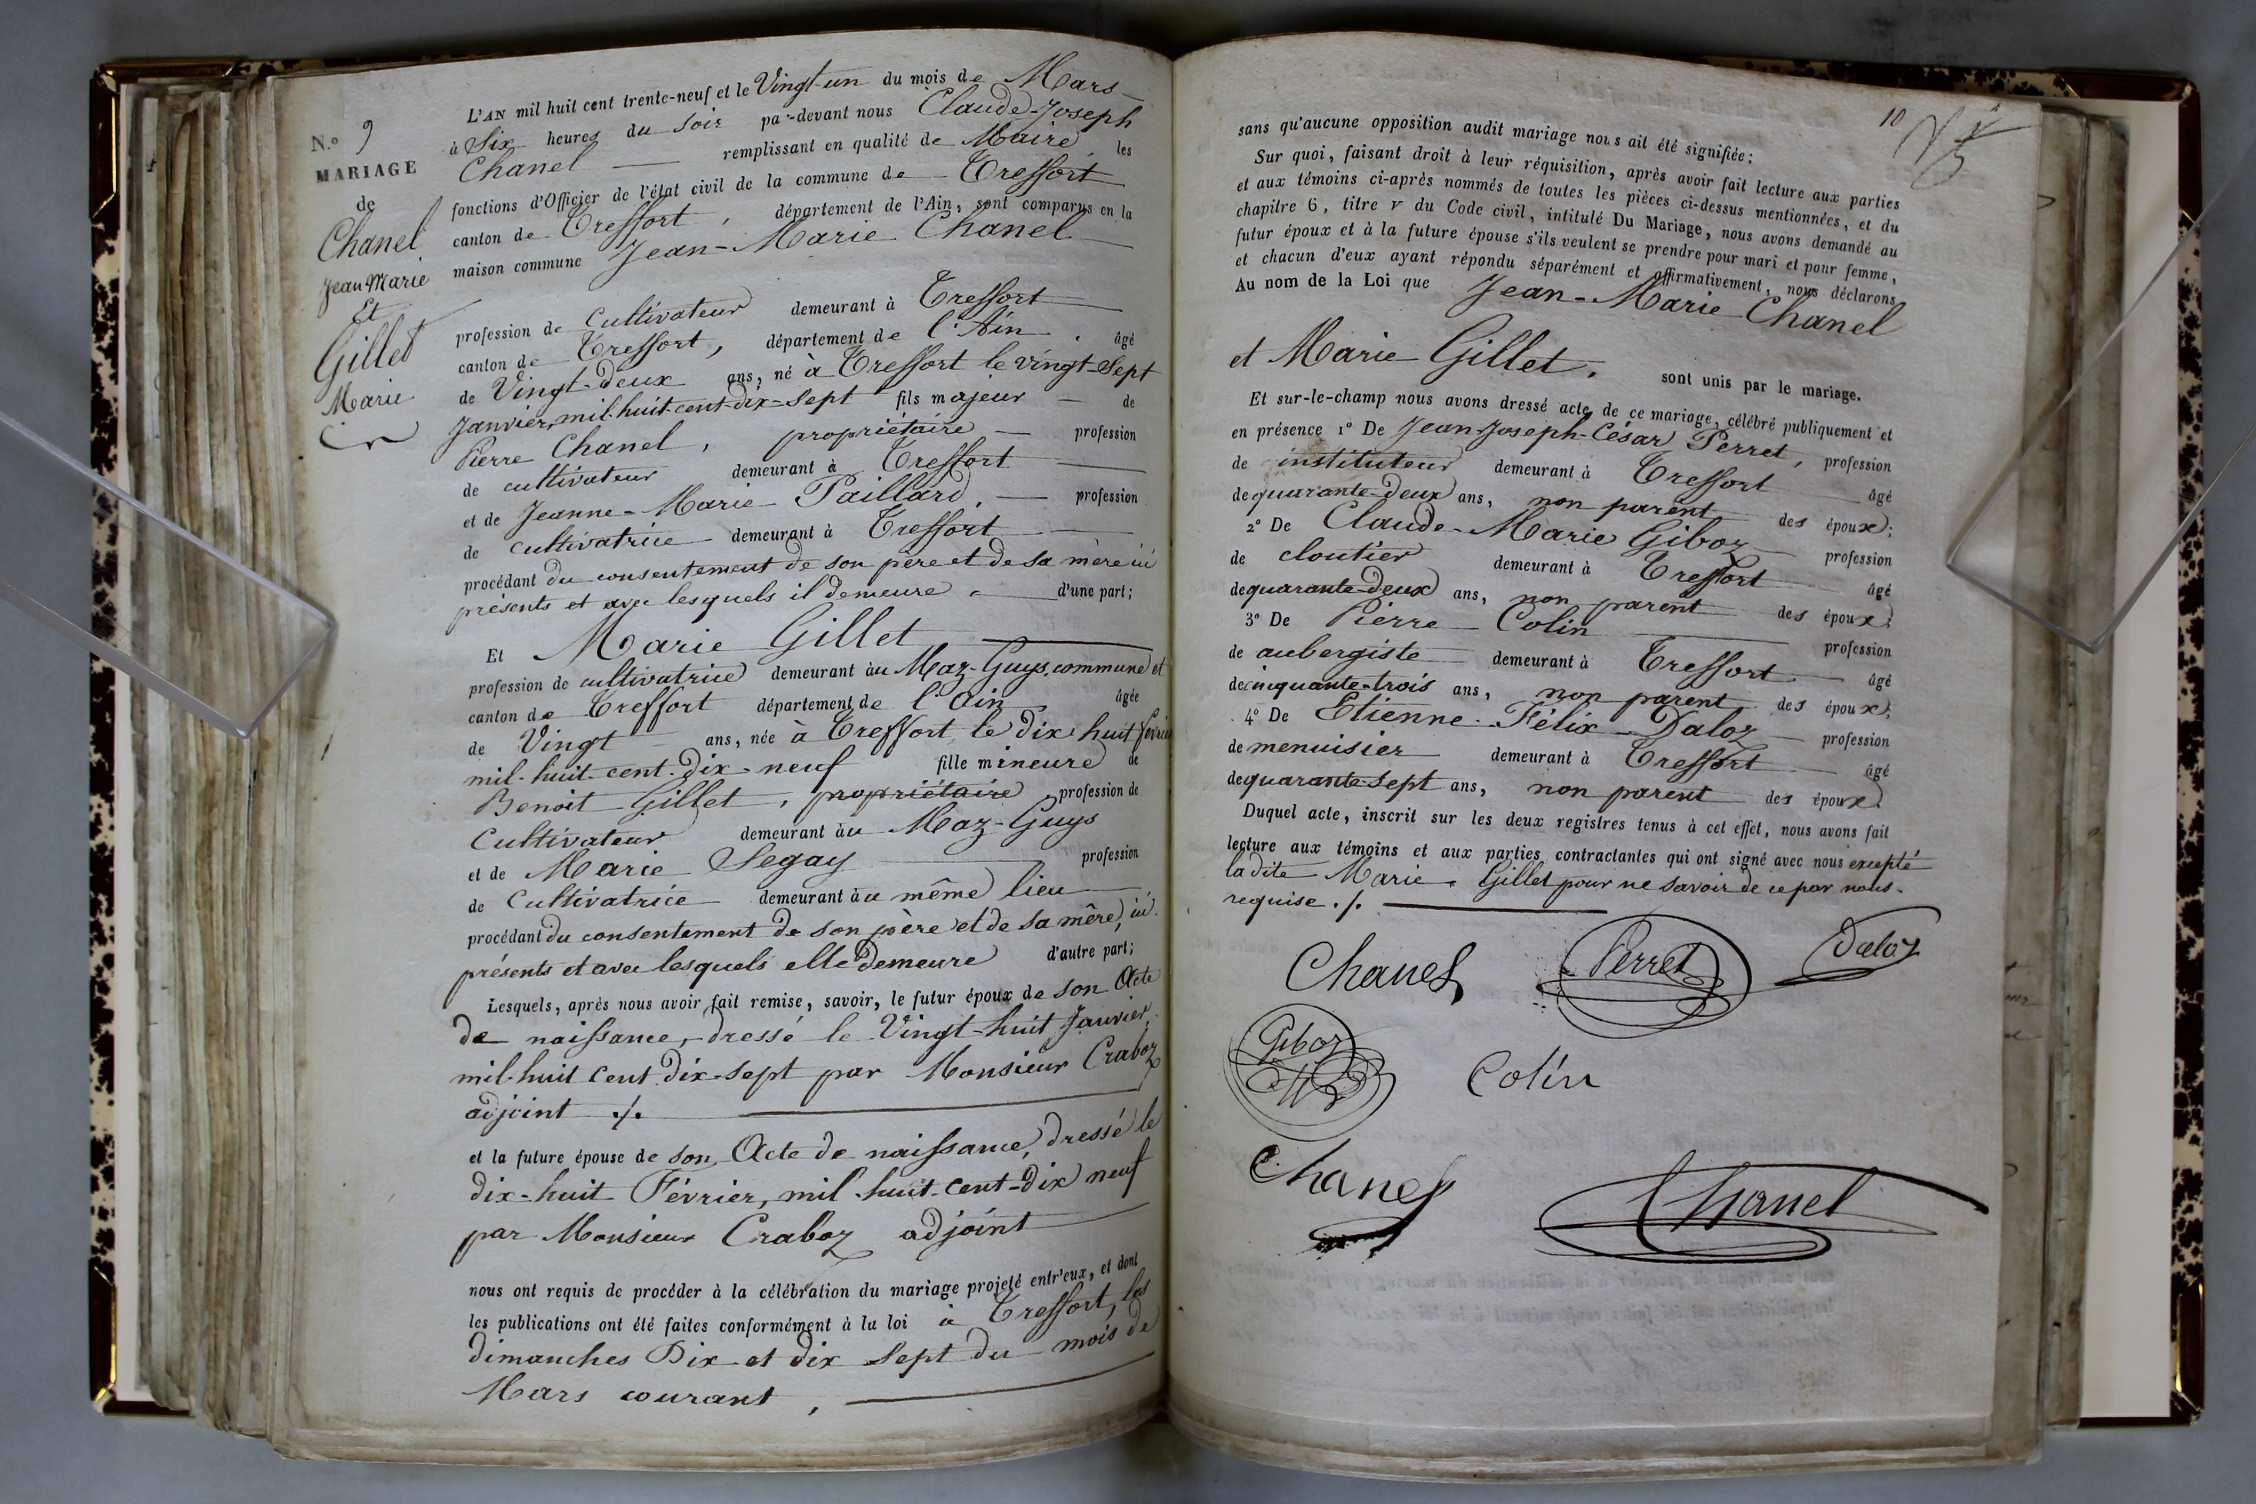 N.º 9
MARIAGE
de
Chanel
Jean Marie
Et
Gillet
Marie
L'AN mil huit cent trente-neuf et le Vingt-un du mois de Mars
à Six heures du soir par-devant nous Claude-Joseph
Chanel remplissant en qualité de Maire les
fonctions d'Officier de l'état civil de la commune de Treffort
canton de Treffort, département de l'Ain, sont comparus en la
maison commune Jean-Marie Chanel
profession de Cultivateur demeurant à Treffort
canton de Treffort, département de l'Ain, âgé
de Vingt-deux ans, né à Treffort le vingt-Sept
Janvier, mil-huit-cent-dix-sept fils majeur de
Pierre Chanel, propriétaire profession
de cultivateur demeurant à Treffort
et de Jeanne-Marie Paillard, profession
de cultivatrice demeurant à Treffort
procédant du consentement de son père et de sa mère ici
présents et avec lesquels il demeure d'une part;
Et Marie Gillet
profession de cultivatrice demeurant àu Maz-Guys, commune et
canton de Treffort département de l'Ain âgée
de Vingt ans, née à Treffort, le dix-huit février
mil-huit-cent-dix-neuf fille mineure de
Benoit Gillet, propriétaire profession de
Cultivateur demeurant àu Maz-Guys
et de Marie Segay profession
de Cultivatrice demeurant àu même lieu
procédant du consentement de son père et de sa mère, ici
présents et avec lesquels elle demeure d'autre part;
Lesquels, après nous avoir fait remise, savoir, le futur époux de son Acte
de naissance, dressé le Vingt-huit Janvier,
mil-huit cent dix-sept par Monsieur Craboz
adjoint ./.
et la future épouse de son Acte de naissance, dressé le
dix-huit Février, mil-huit-cent-dix neuf
par Monsieur Craboz adjoint
nous ont requis de procéder à la célébration du mariage projeté entr'eux, et dont
les publications ont été faites conformément à la loi à Treffort, les
dimanches Dix et dix Sept du mois de
Mars courant,
10
sans qu'aucune opposition audit mariage nous ait été signifiée;
Sur quoi, faisant droit à leur réquisition, après avoir fait lecture aux parties
et aux témoins ci-après nommés de toutes les pièces ci-dessus mentionnées, et du
chapitre 6, titre V du Code civil, intitulé Du Mariage, nous avons demandé au
futur époux et à la future épouse s'ils veulent se prendre pour mari et pour femme,
et chacun d'eux ayant répondu séparément et affirmativement, nous déclarons
Au nom de la Loi que Jean-Marie Chanel
et Marie Gillet, sont unis par le mariage.
Et sur-le-champ nous avons dressé acte de ce mariage, célébré publiquement et
en présence 1º De Jean-Joseph-César Perret, profession
de instituteur demeurant à Treffort âgé
de quarante-deux ans, non parent des époux;
2º De Claude-Marie Giboz profession
de cloutier demeurant à Treffort âgé
de quarante-deux ans, non parent des époux;
3º De Pierre Colin profession
de aubergiste demeurant à Treffort âgé
de cinquante-trois ans, non parent des époux;
4º De Etienne-Félix Daloz profession
de menuisier demeurant à Treffort âgé
de quarante-sept ans, non parent des époux.
Duquel acte, inscrit sur les deux registres tenus à cet effet, nous avons fait
lecture aux témoins et aux parties contractantes qui ont signé avec nous excepté
la dite Marie Gillet pour ne savoir de ce par nous
requise ./.
Chanel Perret Daloz
Giboz Colin
Chanel Chanel